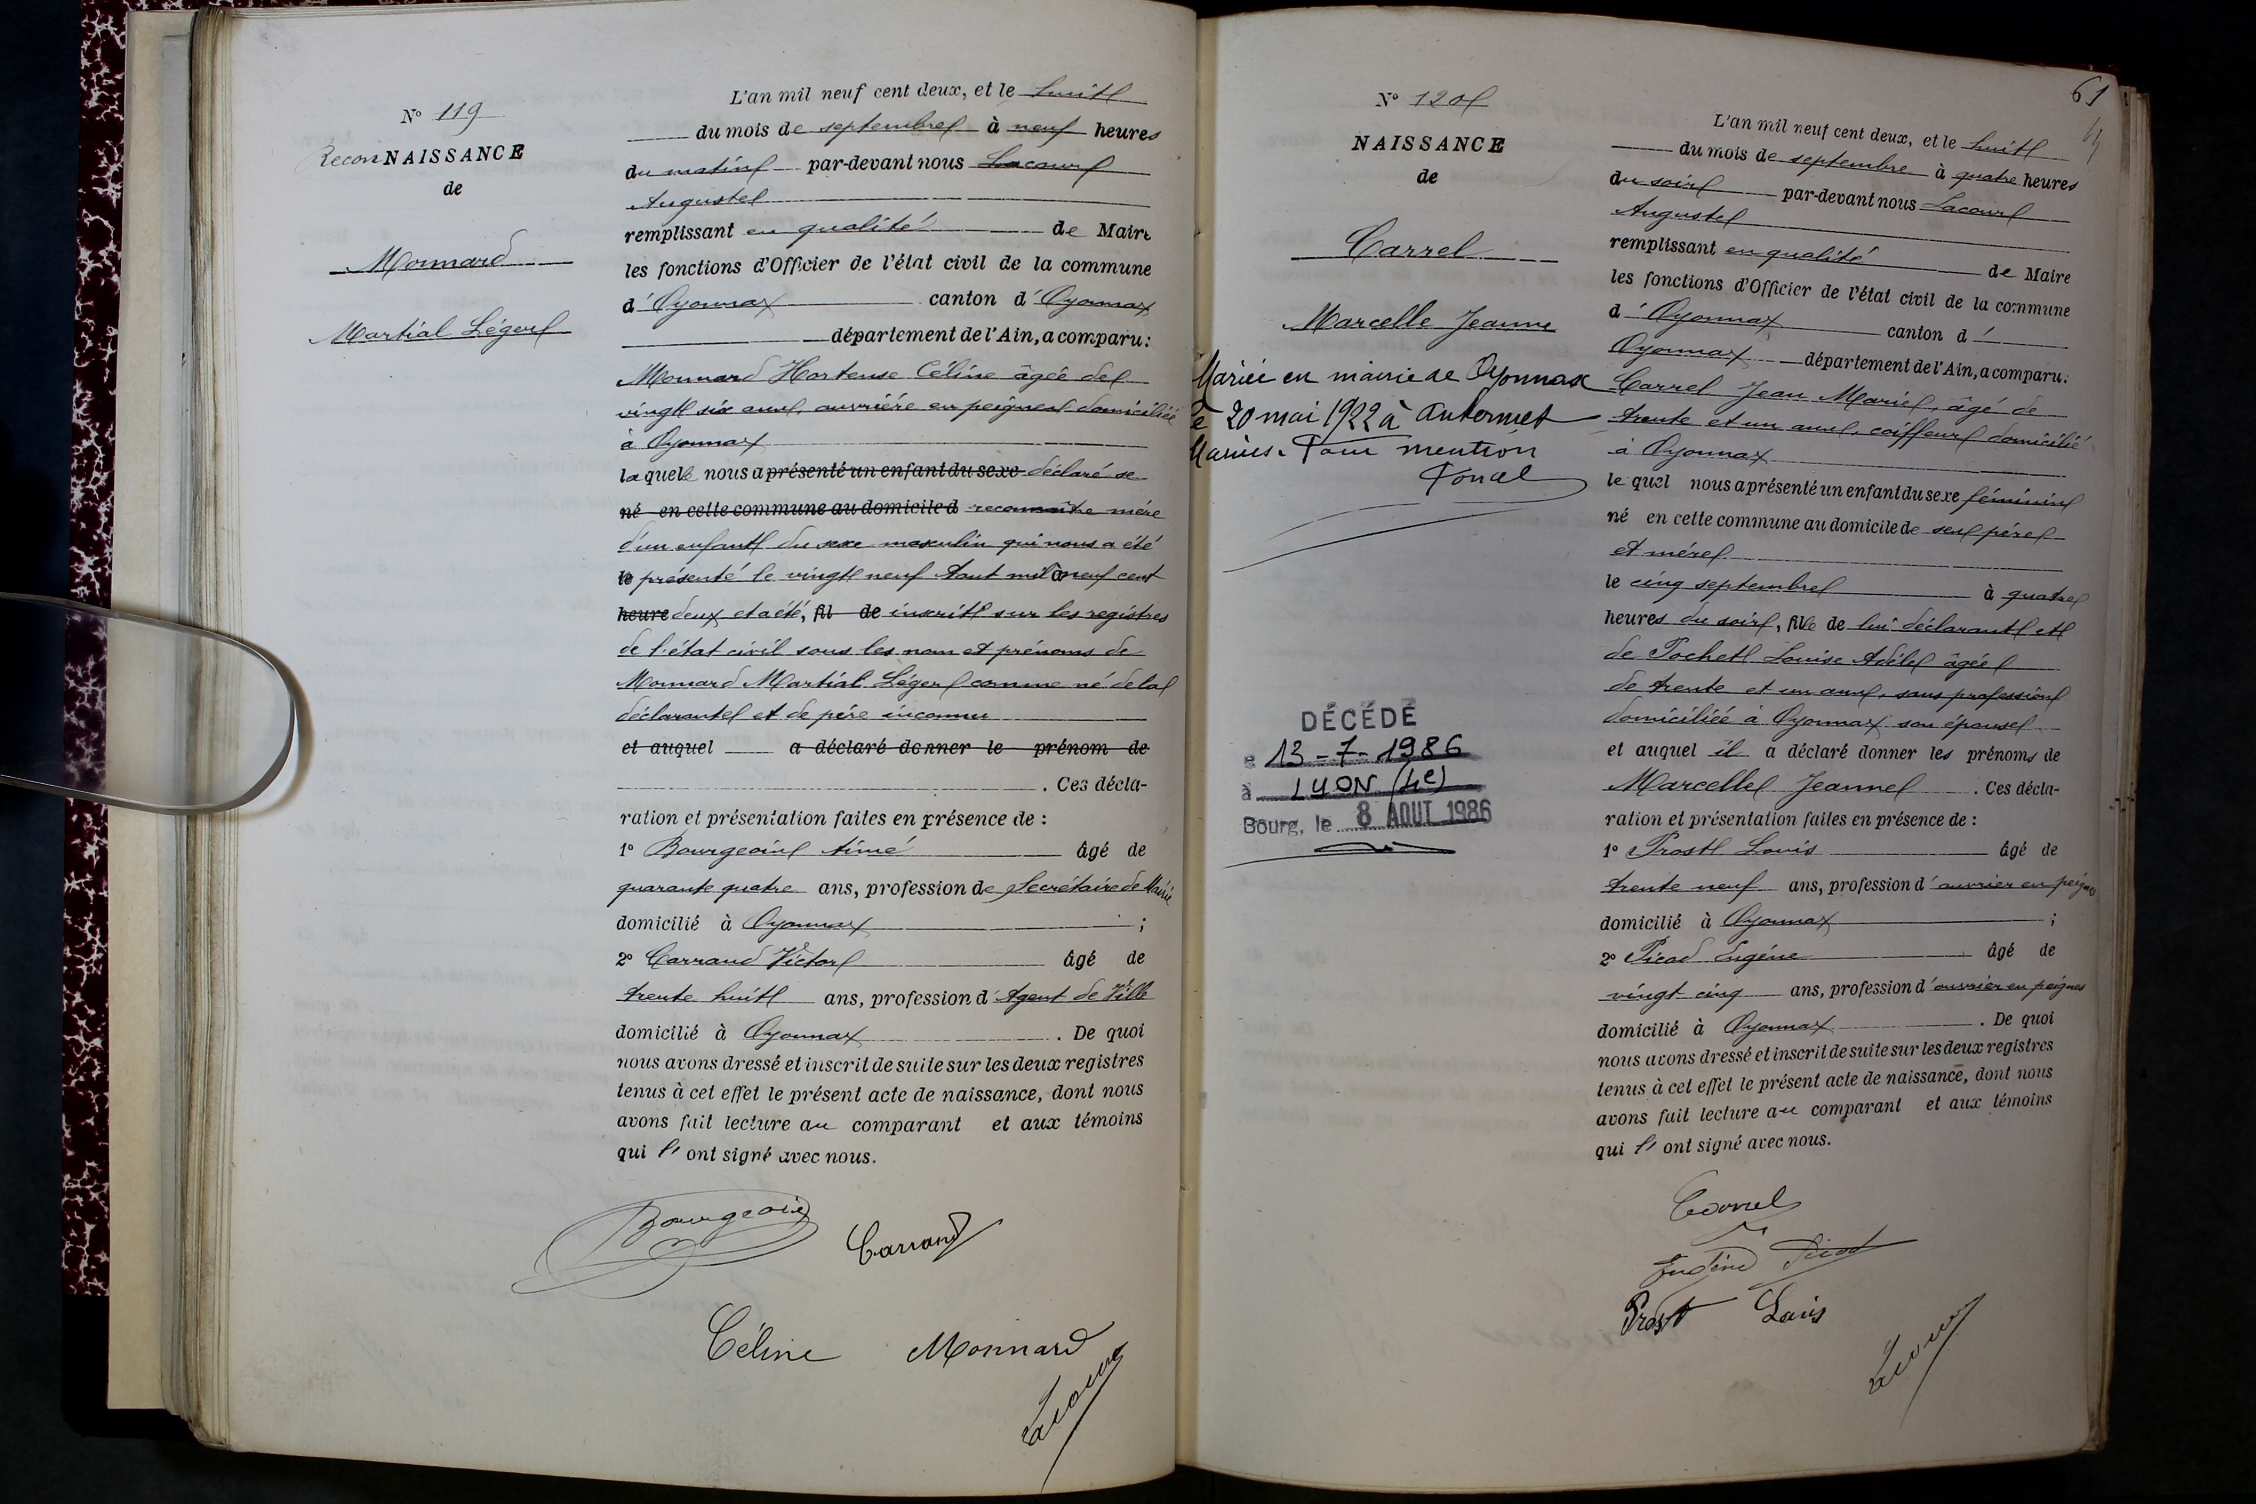 N° 119
ReconNAISSANCE
de
Monnard
Martial Léger
L'an mil neuf cent deux, et le huit
du mois de septembre à neuf heures
du matin par-devant nous Lacour
Auguste
remplissant en qualité de Maire
les fonctions d'Officier de l'état civil de la commune
d'Oyonnax canton d'Oyonnax
département de l'Ain, a comparu:
Monnard Hortense Céline âgée de
vingt six ans, ouvrière en peignes domiciliée
à Oyonnax
laquelle nous a présenté un enfant du sexe déclaré se
né en cette commune au domicile d reconnaître mère
d'un enfant du sexe masculin qui nous a été
le présenté le vingt neuf Aout mil à neuf cent
heure deux et a été, fil de inscrit sur les registres
de l'état civil sous les nom et prénoms de
Monnard Martial Léger comme né de la
déclarante et de père inconnu
et auquel a déclaré donner le prénom de
. Ces décla-
ration et présentation faites en présence de :
1° Bourgeoin Aimé âgé de
quarante quatre ans, profession de Secrétaire de Mairie
domicilié à Oyonnax ;
2° Carrand Victor âgé de
trente huit ans, profession d'Agent de Ville
domicilié à Oyonnax . De quoi
nous avons dressé et inscrit de suite sur les deux registres
tenus à cet effet le présent acte de naissance, dont nous
avons fait lecture au comparant et aux témoins
qui l' ont signé avec nous.
Bourgeoin Carrand
Céline Monnard
Lacour
61
N° 120
NAISSANCE
de
Carrel
Marcelle Jeanne
Mariée en mairie de Oyonnax
le 20 mai 1922 à
Marius. Pour mention
DÉCÉDÉ
e 13-7-1986
à LYON (4e)
Bourg, le 8 AOUT 1986
L'an mil neuf cent deux, et le huit
du mois de septembre à quatre heures
du soir par-devant nous Lacour
Auguste
remplissant en qualité de Maire
les fonctions d'Officier de l'état civil de la commune
d'Oyonnax canton d'
Oyonnax département de l'Ain, a comparu:
Carrel Jean Marie, âgé de
trente et un ans, coiffeur domicilié
à Oyonnax
lequel nous a présenté un enfant du sexe féminin
né en cette commune au domicile de ses père
et mère
le cinq septembre à quatre
heures du soir, fille de lui déclarant et
de Pochet Louise Adèle âgée
de trente et un ans, sans profession
domiciliée à Oyonnax son épouse
et auquel il a déclaré donner les prénoms de
Marcelle Jeanne . Ces décla-
ration et présentation faites en présence de :
1° Prost Louis âgé de
trente neuf ans, profession d'ouvrier en peignes
domicilié à Oyonnax ;
2° Picod Eugène âgé de
vingt cinq ans, profession d'ouvrier en peignes
domicilié à Oyonnax . De quoi
nous avons dressé et inscrit de suite sur les deux registres
tenus à cet effet le présent acte de naissance, dont nous
avons fait lecture au comparant et aux témoins
qui l' ont signé avec nous.
Carrel
Eugène Picod
Prost Louis
Lacour